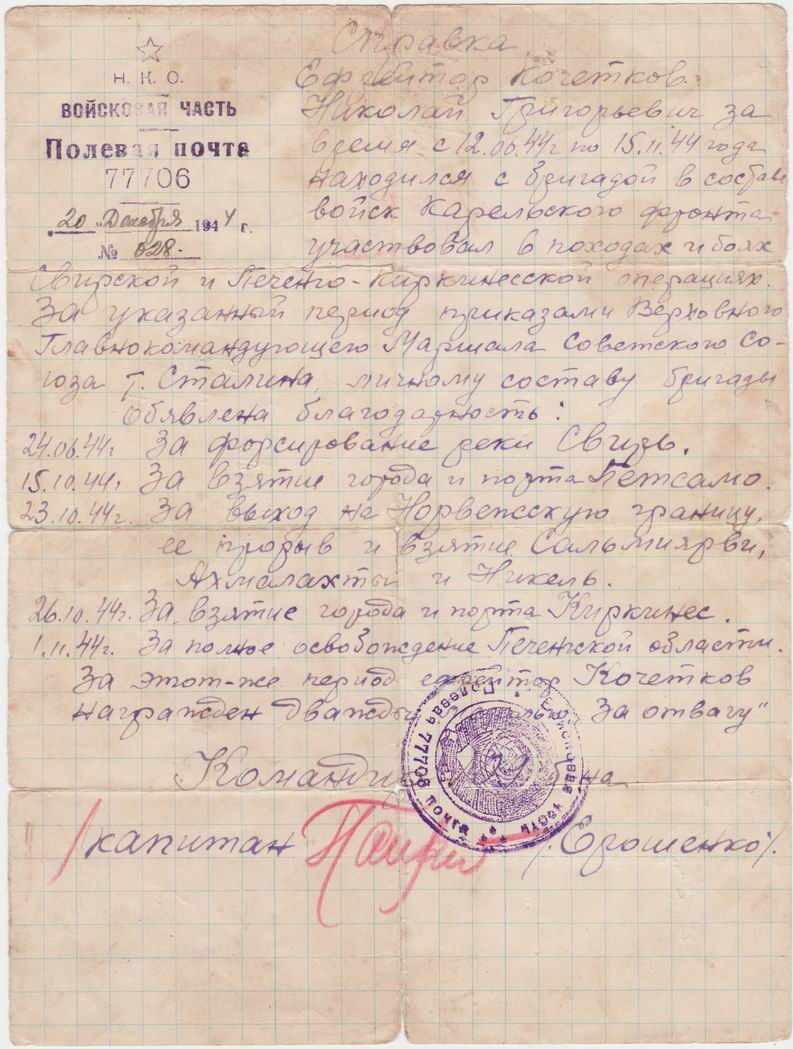 Н. К. О.
ВОЙСКОВАЯ ЧАСТЬ
Полевая почта
77706
„20" Декабря 1944 г.
№ 028.
Справка
Ефрейтор Кочетков
Николай Григорьевич за
время с 12.06.44г по 15.11.44 года
находился с бригадой в составе
войск Карельского фронта
участвовал в походах и боях
Свирской и Печенго-Киркинесской операциях.
За указанный период приказами Верховного
Главнокомандующего Маршала Советского Со-
юза т. Сталина, личному составу бригады
объявлена благодарность:
24.06.44г За форсирование реки Свирь.
15.10.44г. За взятие города и порта Петсамо.
23.10.44г. За выход на Норвежскую границу,
ее прорыв и взятие Сальмиярви,
Ахмалахти и Никель.
26.10.44г. За взятие города и порта Киркинес.
1.11.44г. За полное освобождение Печенгской области.
За этот-же период ефрейтор Кочетков
награжден дважды За отвагу"
Командир
капитан /Ерошенко/.
Войсковая часть
Полевая почта 77706